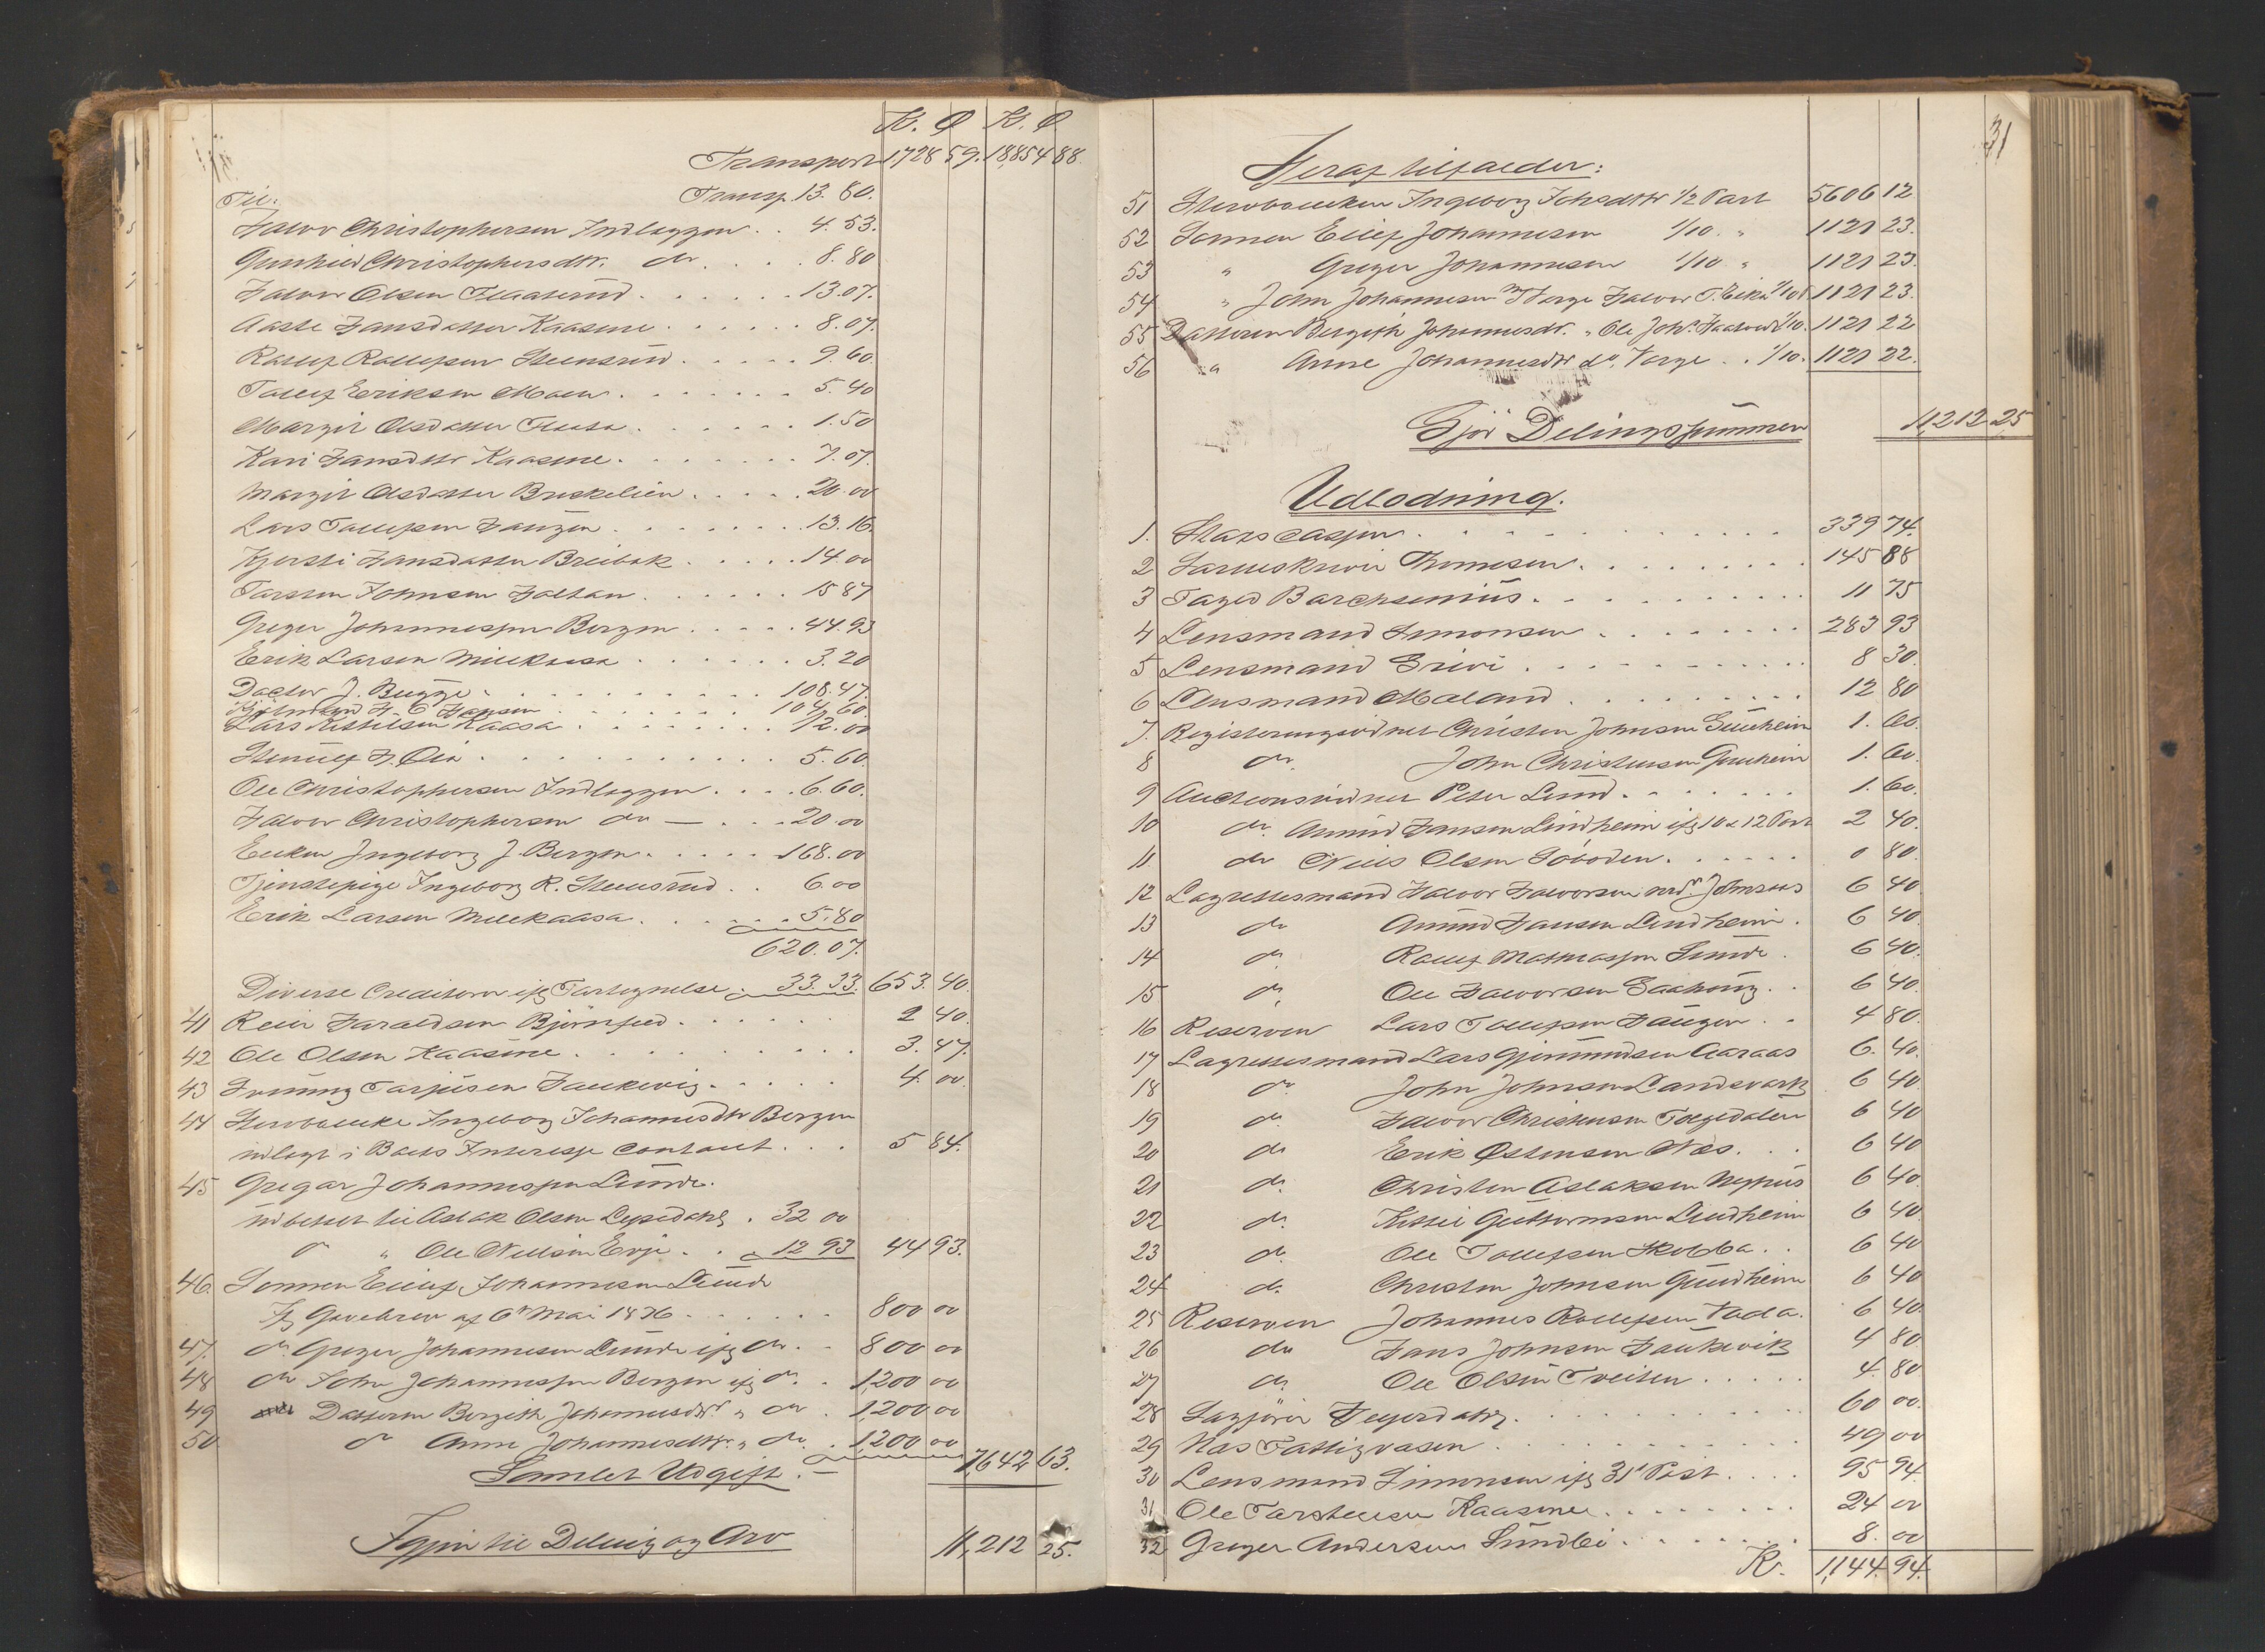 Kr. Ø Kr. Ø
Transport 1728 59. 18,854 88
Til: Transp. 13.80.
Halvor Christophersen Indleggen . . 4.53.
Gunhild Christophersdtr. do . . . . 8.80
Halvor Olsen Flaaterud . . . . . . 13.07.
Aaste Hansdatter Kaasene . . . . . . 8.07.
Rollef Rollefsen Steensrud . . . . . 9.60
Tollef Eriksen Moen . . . . . . . 5.40
Margit Olsdatter Flaata . . . . . . 1.50
Kari Hansdtr Kaasene . . . . . . . 7.07.
Margit Olsdatter Buskelien . . . . . 20.00
Lars Tollefsen Haugen . . . . . . . 13.16.
Kjersti Hansdatter Breibak . . . . . 14.00
Tarsten Johnsen Holtan . . . . . . 15 87
Greger Johannessen Bergen . . . . . 44.93
Erik Larsen Millekaasa . . . . . . 3.20
Doctor J. Bugge . . . . . . . . . . 108.47.
H. C. Hansen . . . . . . . 104.60.
Lars Kittelsen Kaasa . . . . . . . 12.00
Stenulf H. Lia . . . . . . . . . . 5.60
Ole Christophersen Indleggen . . . . 6.60.
Halvor Christophersen do — . . . 20.00
Enken Ingeborg J. Bergen . . . . . 168.00
Tjenstepige Ingeborg R. Steensrud . . 6.00
Erik Larsen Millekaasa . . . . . . 5.80
620.07.
Diverse Creditorer ifg Fortegnelse . 33.33. 653. 40.
41 Reier Haraldsen Bjørnfeld . . . . . . 2 40.
42 Ole Olsen Kaasene . . . . . . . . . . 3. 47.
43 Tarjusen Haukevig . . . . . 4. 00.
44 Stervboenke Ingeborg Johannesdtr Bergen
indlagt i Boets Interesse contant . . . 5 84.
45 Gregar Johannessen Lunde.
udbetalt til Aslak Olsen Lysedahl . 32 00
do " Ole Nielsen Evje . . 12 93 44 93.
46. Sønnen Eilef Johannesen Lunde
Ifg Gavebrev af 6te Mai 1876 . . . . . . 800 00
47. do Greger Johannesen Lunde ifg do . . 800 00
48 do John Johannessen Bergen ifg do . . 1,200 00
49 Datteren Bergith Johannesdtr " do . 1,200 00
50 do Anne Johannesdtr. " do . . 1,200 00
Samlet Udgift . — 7,642 63.
Igjen til Deling og Arv 11,212 25.
31
Heraf tilfalder:
51 Stervboenken Ingeborg Johsdtr 1/2 Part 5606 12
52 Sønnen Eilef Johannesen 1/10 " 1121 23.
53 " Greger Johannesen 1/10 " 1121 23.
54 " John Johannesen m/ Verge Halvor T. Eika 1/10 1121 23.
55 Datteren Bergith Johannesdtr. " Ole Johs. Haatveit 1/10. 1121 22
56 " Anne Johannesdtr do Verge . . 1/10. 1121 22.
Gjør Delingssummen 11,212 25
Udlodning.
1. Skatscassen . . . . . . . . . 339 74.
2 Sorenskriver Thomesen . . . . . . . . 145 88
3 Foged Barchsenius . . . . . . . . . 11 75
4 Lensmand Simonsen . . . . . . . . 283 93
5 Lensmand Grivi . . . . . . . . . . 8 30.
6 Lensmand Moland . . . . . . . . . 12 80
7. Registeringsvidnet Christen Johnsen Gundheim 1. 60.
8 do. John Christensen Gundheim 1. 60.
9 Auctionsvidnet Peter Lund . . . . . . . 1. 60.
10 do. Amund Hansen Lindheim ifg 10 & 12 Post 2 40.
11 do Niels Olsen Søboden . . . . . . 0 80.
12 Lagrettesmand Halvor Halvorsen nrd. Johnsaas 6 40
13 do Amund Hansen Lindheim . 6 40.
14 do Rollef Mathiassen Lunde . 6 40.
15 do Ole Halvorsen Gaahaug . . 6 40.
16 Reserven Lars Tollefsen Haugen . . 4 80.
17 Lagrettesmand Lars Gjermundsen Aaraas 6. 40.
18 do John Johnsen Landsvark 6 40.
19 do Halvor Christensen Tolgedalen 6 40
20 do Erik Østensen Næs . . . 6 40
21 do Christen Aslaksen Nyhus 6 40.
22 do Kittil Guttormsen Lindheim 6 40
23 do Ole Tollefsen Skobba . . 6 40
24 do Christen Johnsen Gundheim 6 40
25 Reserven Johannes Rollefsen Tveda . 6 40.
26 do Hans Johnsen Haukevik 4 80.
27 do Ole Olsen Tveiten . . . . . 4. 80.
28 Sagfører Heyerdahl . . . . . . . . . 60 00.
29 Næs Fattigvæsen . . . . . . . . . . 49 00
30 Lensmand Simonsen ifg 31te Post . . . . 95 94.
31 Ole Tarstensen Kaasene . . . . . . . . 24 00
32 Greger Andersen Sundbø . . . . . . . 8. 00
Kr. 1,144. 94.